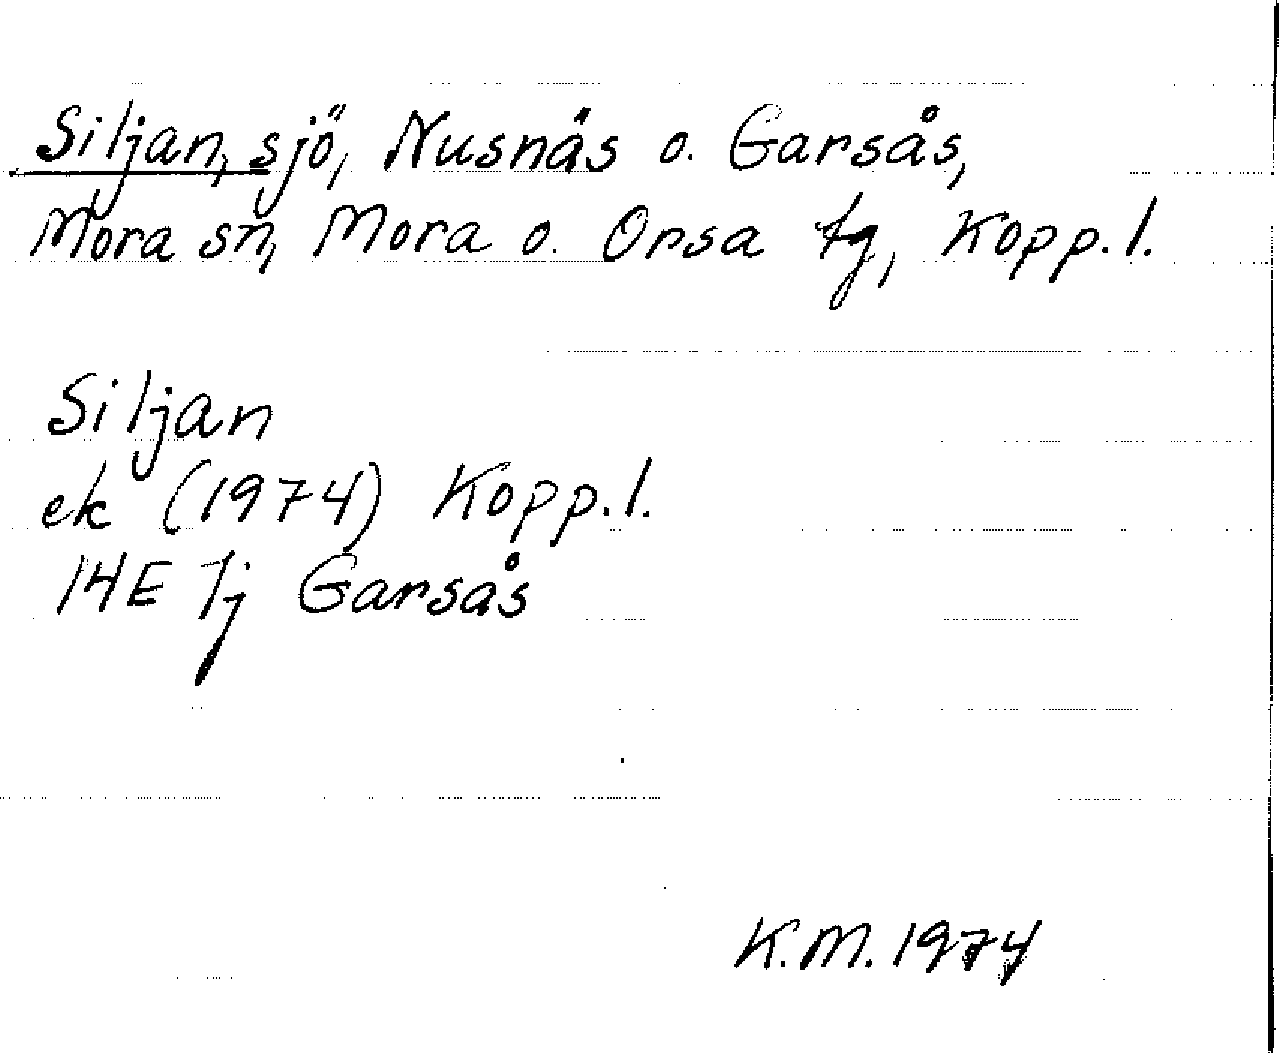 Siljan, sjö, Nusnäs o. Garsås,
Mora sn, Mora o. Orsa tg, Kopp. l.
Siljan
ek (1974) Kopp. l.
14E 1j Garsås
K.M. 1974